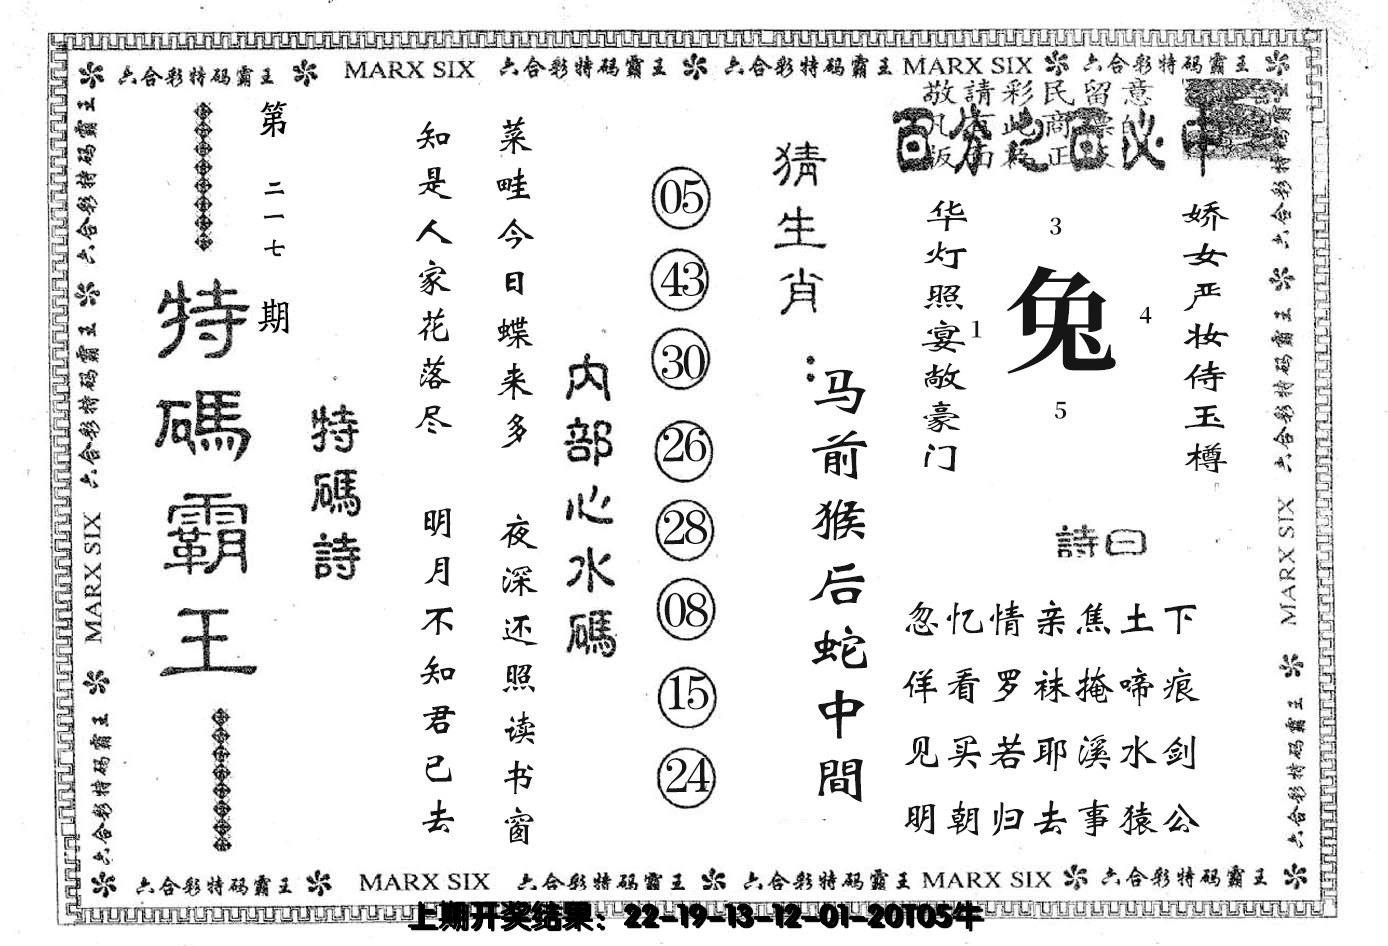 六合彩特码霸王 MARX SIX 六合彩特码霸王 六合彩特码霸王 MARX SIX 六合彩特码霸王
六合彩特码霸王
六合彩特码霸王
MARX SIX
六合彩特码霸王
第二一七期
特碼霸王
特碼詩
知是人家花落尽
明月不知君已去
菜畦今日蝶来多
夜深还照读书窗
内部心水碼
05
43
30
26
28
08
15
24
猜生肖：
马前猴后蛇中間
敬請彩民留意
百分之百必中
华灯照宴敞豪门
3
1
兔
4
5
娇女严妆侍玉樽
詩曰
忽忆情亲焦土下
佯看罗袜掩啼痕
见买若耶溪水剑
明朝归去事猿公
六合彩特码霸王
六合彩特码霸王
MARX SIX
六合彩特码霸王
六合彩特码霸王 MARX SIX 六合彩特码霸王 六合彩特码霸王 MARX SIX 六合彩特码霸王
上期开奖结果：22-19-13-12-01-20T05牛